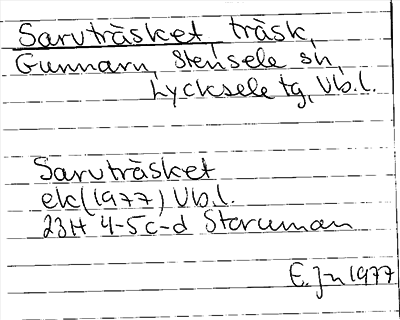 Sarvträsket, träsk,
Gunnarn, Stensele sn,
Lycksele tg, Vb.l.
Sarvträsket
ek (1977) Vb.l.
23H 4-5c-d Storuman
E. Jn 1977